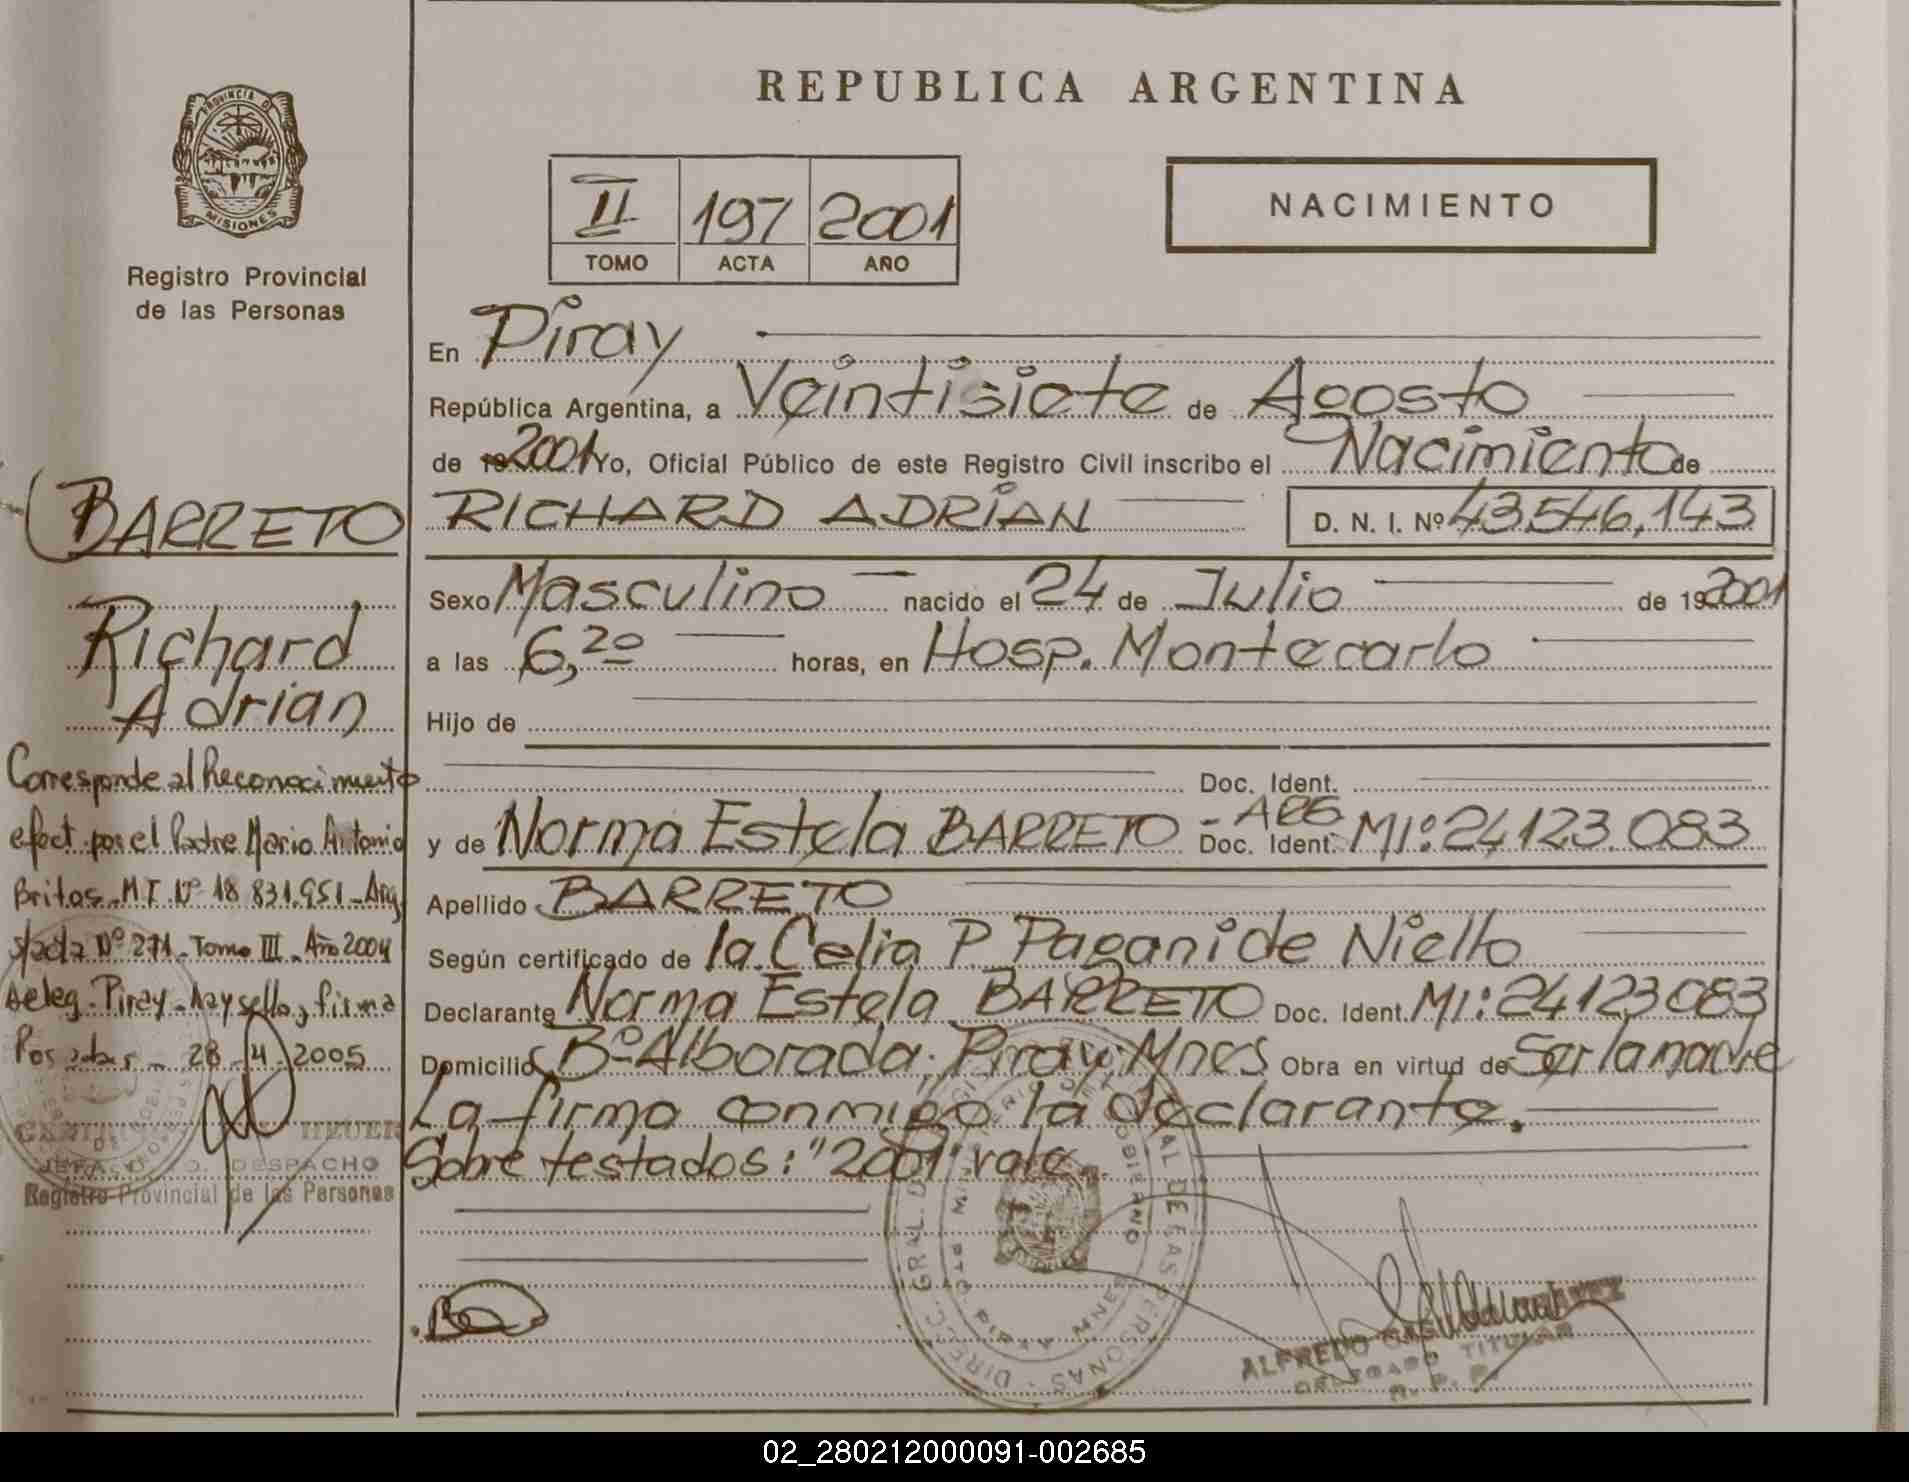 REPUBLICA ARGENTINA
PROVINCIA DE
MISIONES
Registro Provincial
de las Personas
II 197 2001
TOMO ACTA AÑO
NACIMIENTO
En Piray
República Argentina, a Veintisiete de Agosto
de 19 2001 Yo, Oficial Público de este Registro Civil inscribo el Nacimiento de
RICHARD ADRIAN D. N. I. Nº 43.546.143
Sexo Masculino nacido el 24 de Julio de 19 2001
a las 6,20 horas, en Hosp. Montecarlo
Hijo de
Doc. Ident.
y de Norma Estela BARRETO - ARG Doc. Ident. MI: 24123.083
Apellido BARRETO
Según certificado de la Celia P. Pagani de Niello
Declarante Norma Estela BARRETO Doc. Ident. MI: 24123083
Domicilio Bº Alborada; Piray; Mnes Obra en virtud de Ser la madre
La firma conmigo la declarante.
Sobre testados: "2001" vale.
BARRETO
Richard
Adrian
Corresponde al Reconocimiento
efect. por el Padre Mario Antonio
Britos - M.I. Nº 18.831.951 - Arg.
s/acta Nº 271 - Tomo III - Año 2004
Deleg. Piray - hay sello y firma
Posadas - 28-4-2005
JEFA DESPACHO
Registro Provincial de las Personas
ALFREDO
DELEGADO TITULAR
R. P. P.
02_280212000091-002685